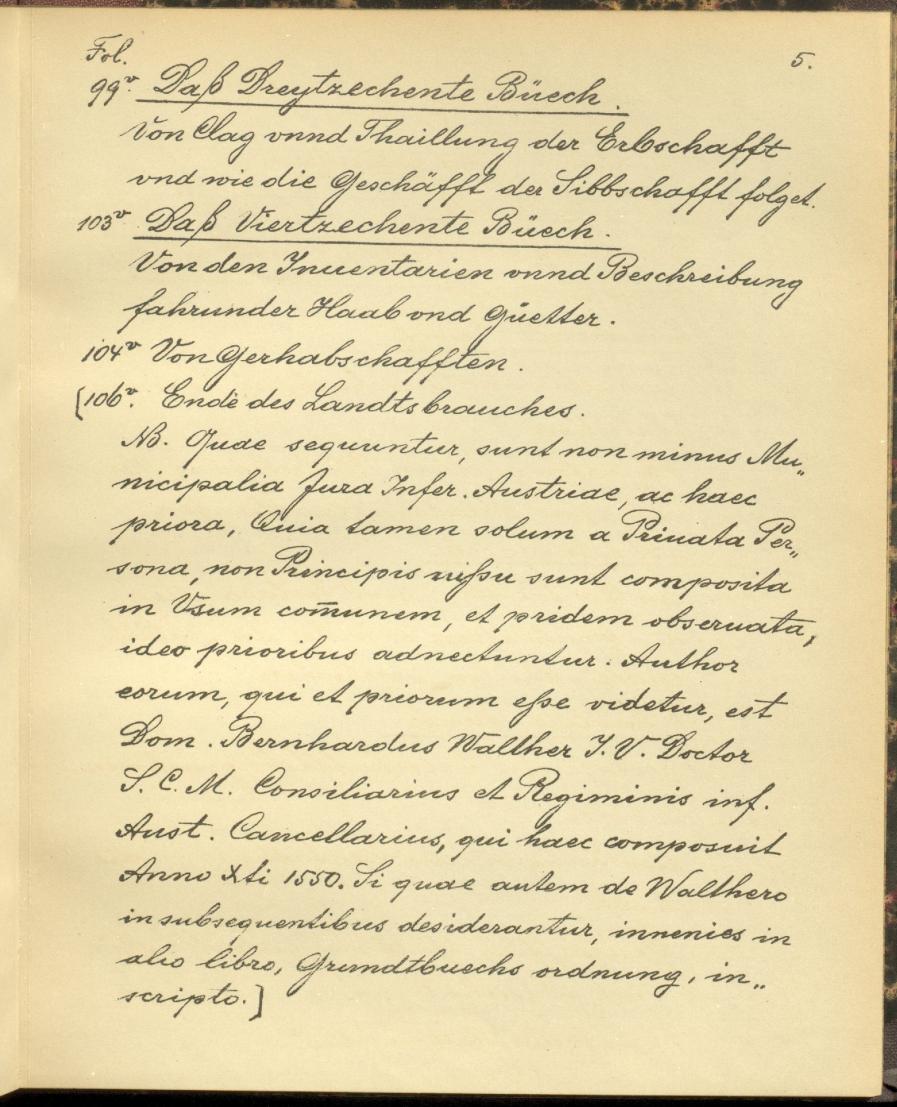 Fol. 5.
99v. Daß Dreytzechente Büech.
Von Clag vnnd Thaillung der Erbschafft
vnd wie die Geschäfft der Sibbschafft folget.
103v Daß Viertzechente Büech.
Von den Inuentarien vnnd Beschreibung
fahrunder Haab vnd Güetter.
104v Von Gerhabschafften.
[106v. Ende des Landtsbrauches.
NB. Quae sequuntur, sunt non minus Mu„
nicipalia Jura Infer. Austriae, ac haec
priora, Quia tamen solum a Priuata Per„
sona, non Principis iussu sunt composita
in Vsum com̄unem, et pridem obseruata,
ideo prioribus adnectuntur. Author
eorum, qui et priorum esse videtur, est
Dom. Bernhardus Walther I. V. Doctor
S. C. M. Consiliarius et Regiminis inf.
Aust. Cancellarius, qui haec composuit
Anno Xti 1550. Si quae autem de Walthero
in subsequentibus desiderantur, inuenies in
alio libro, Grundtbuechs ordnung, in„
scripto.]